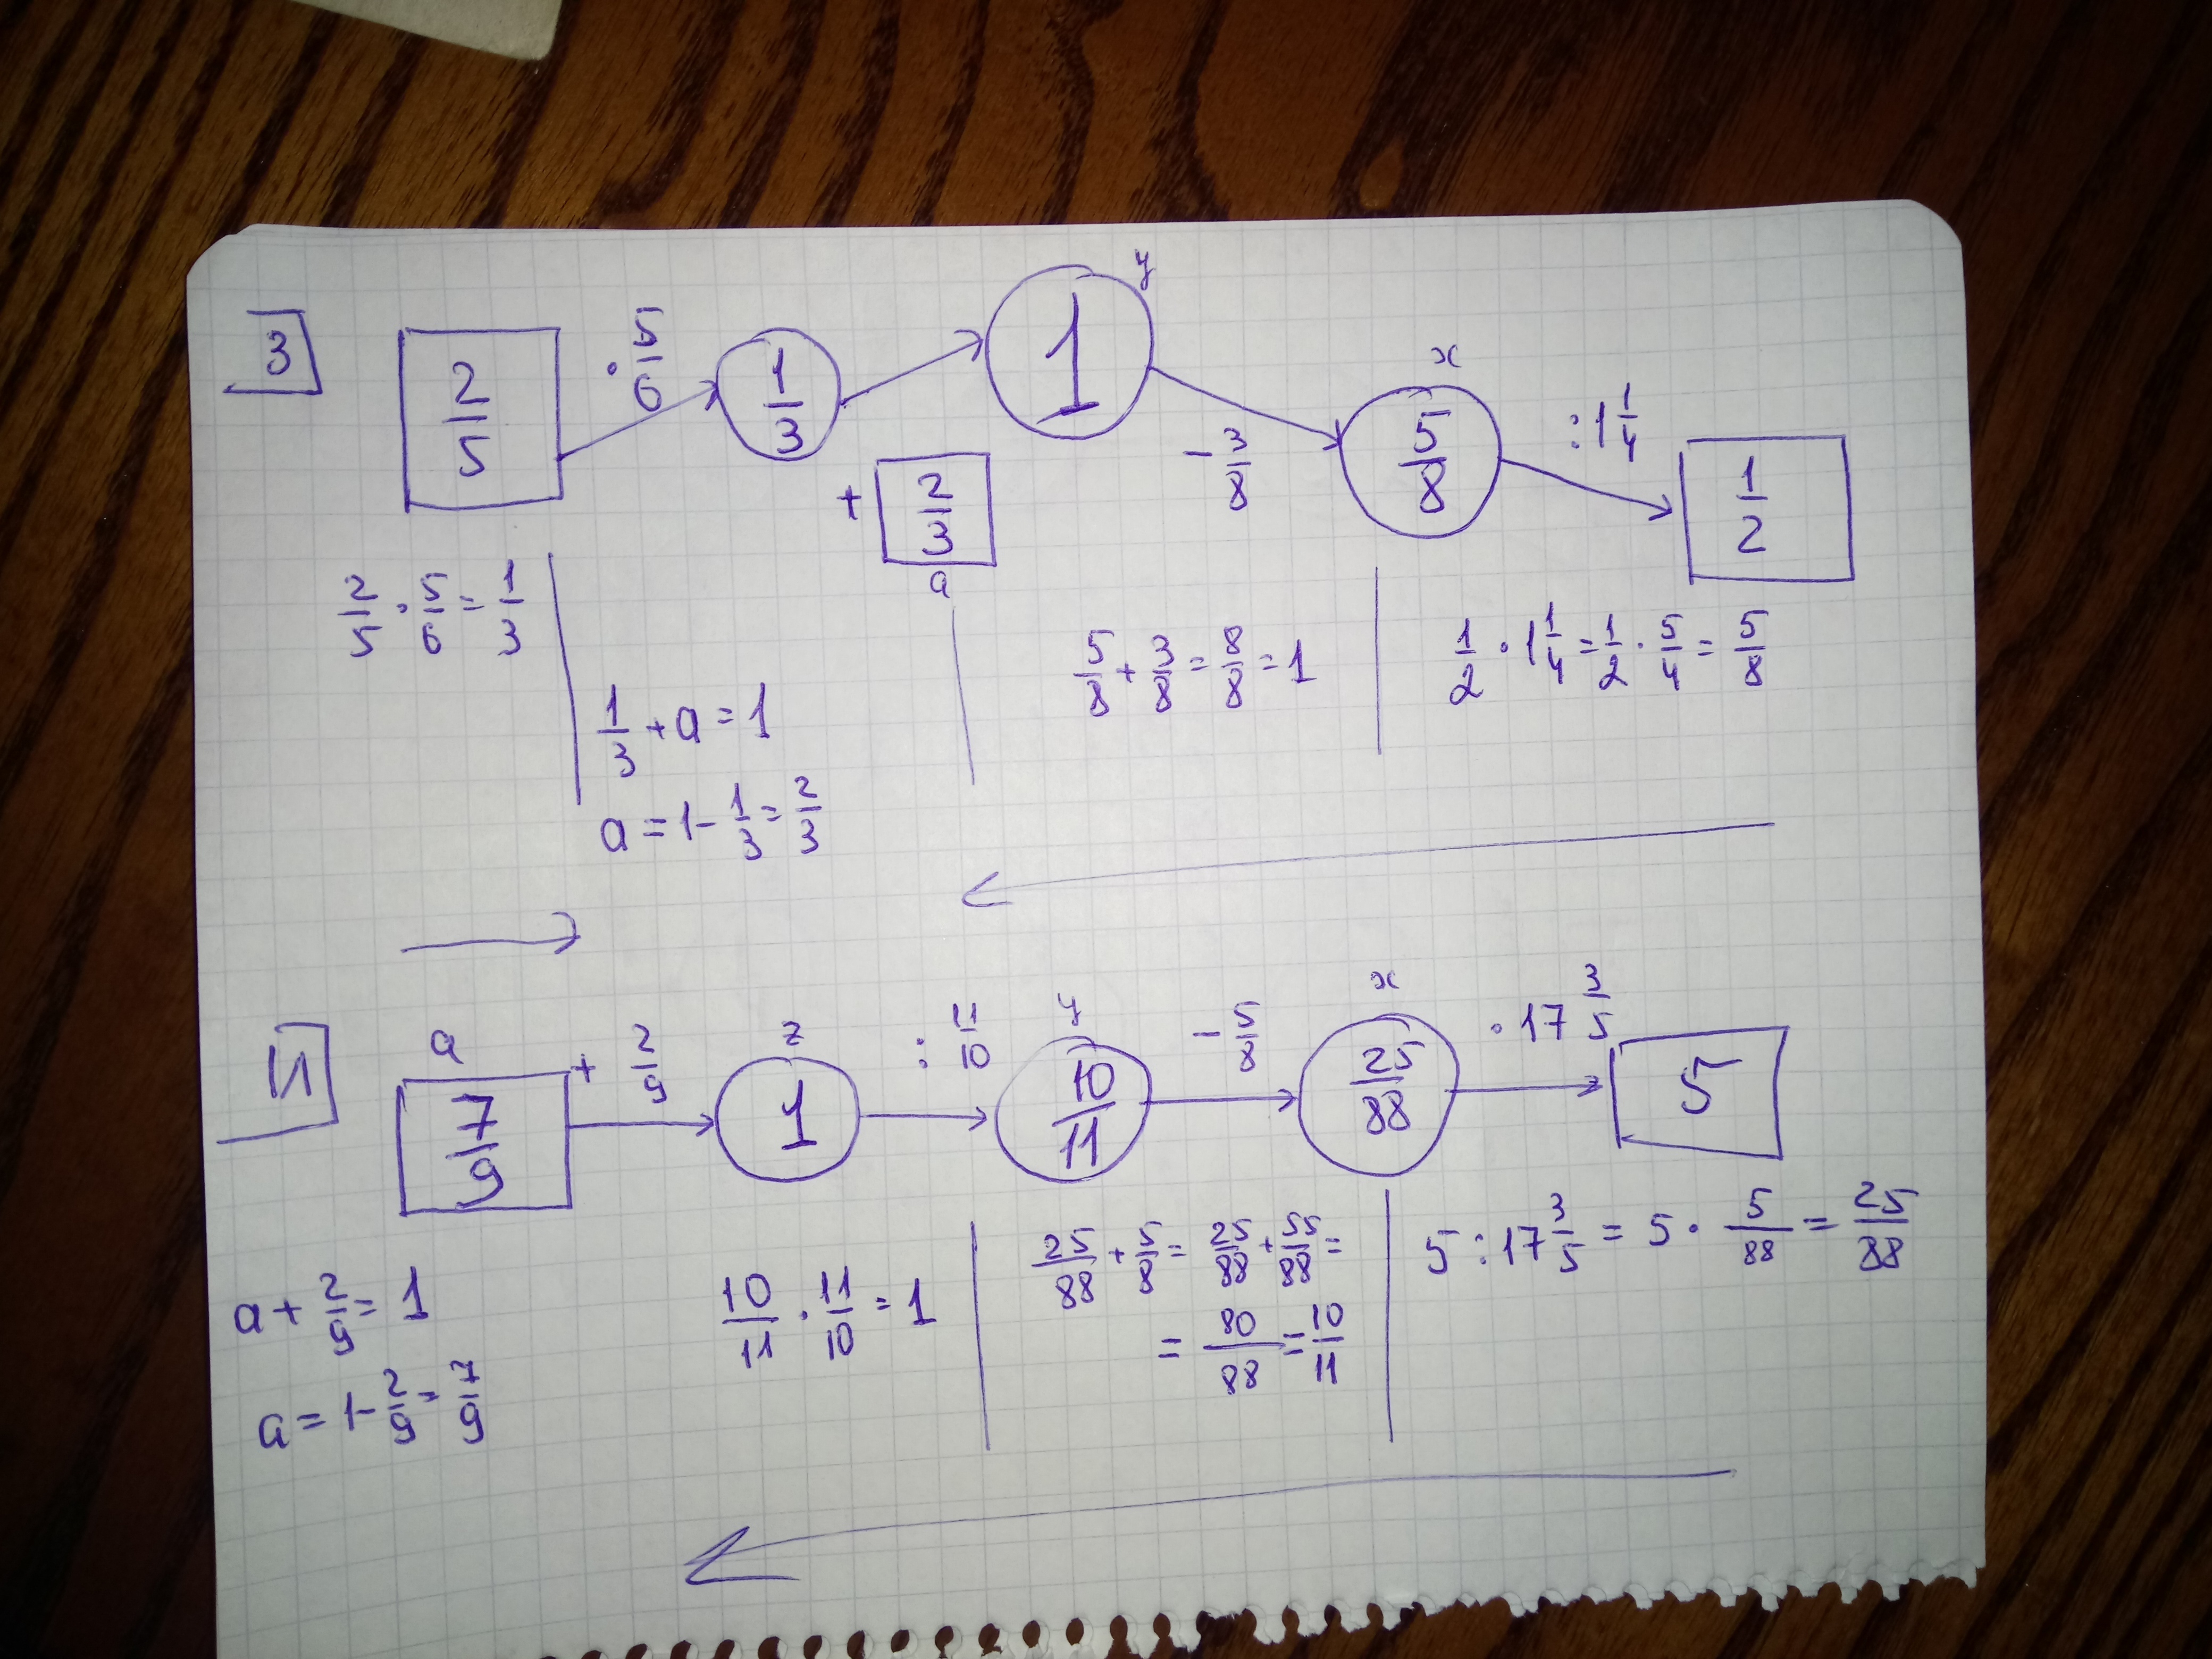 3
2/5 · 5/6 1/3 + 2/3 a 1 y - 3/8 5/8 x : 1 1/4 1/2
2/5 · 5/6 = 1/3
1/3 + a = 1
a = 1 - 1/3 = 2/3
5/8 + 3/8 = 8/8 = 1
1/2 · 1 1/4 = 1/2 · 5/4 = 5/8
a 7/9 + 2/9 z 1 : 11/10 y 10/11 - 5/8 x 25/88 · 17 3/5 5
a + 2/9 = 1
a = 1 - 2/9 = 7/9
10/11 · 11/10 = 1
25/88 + 5/8 = 25/88 + 55/88 =
= 80/88 = 10/11
5 : 17 3/5 = 5 · 5/88 = 25/88